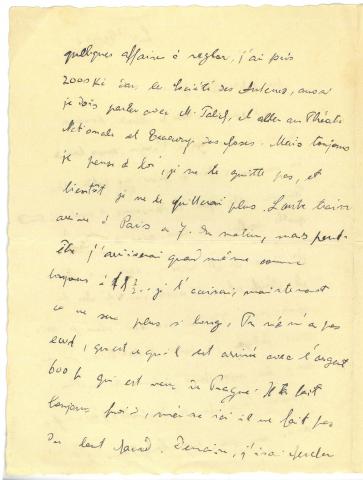 quelques affaires à regler, j'ai pris
200 Kč dans la Société des Auteurs, aussi
je dois parler avec M. et aller au Théâtre
Nationale et beaucoup des choses. Mais toujours
je pense à toi, je ne te quitte pas, et
bientôt je ne te quitterai plus. L'autre train
arrive à Paris a 7. du matin, mais peut-
être j'arriverai quand même comme
toujours à 11½.. je t' maintenant
ce ne sera plus si long. Tu ne m'a pas
ecrit, qu'est ce qu'il est arrivé avec l'argent
600 fr qui est venu de Prague. Il fait
toujours froid, mais ici il ne fait pas
du tout chaud. Demain, j'irai chercher